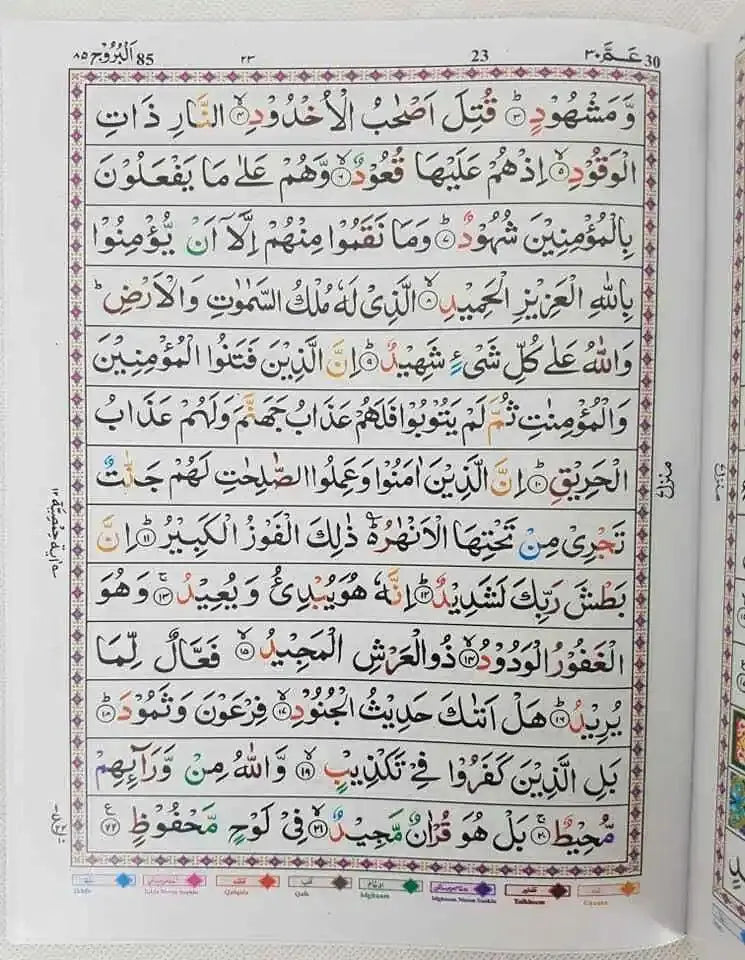 عَمَّ ٣٠ 30
23
٢٣
اَلْبُرُوْج ٨٥ 85
وَّ مَشْهُوْدٍؕ﴿۳﴾ قُتِلَ اَصْحٰبُ الْاُخْدُوْدِۙ﴿۴﴾ النَّارِ ذَاتِ
الْوَقُوْدِۙ﴿۵﴾ اِذْ هُمْ عَلَیْهَا قُعُوْدٌۙ﴿۶﴾ وَّ هُمْ عَلٰی مَا یَفْعَلُوْنَ
بِالْمُؤْمِنِیْنَ شُهُوْدٌؕ﴿۷﴾ وَ مَا نَقَمُوْا مِنْهُمْ اِلَّاۤ اَنْ یُّؤْمِنُوْا
بِاللّٰهِ الْعَزِیْزِ الْحَمِیْدِۙ﴿۸﴾ الَّذِیْ لَهٗ مُلْكُ السَّمٰوٰتِ وَ الْاَرْضِؕ
وَ اللّٰهُ عَلٰی كُلِّ شَیْءٍ شَهِیْدٌؕ﴿۹﴾ اِنَّ الَّذِیْنَ فَتَنُوا الْمُؤْمِنِیْنَ
وَ الْمُؤْمِنٰتِ ثُمَّ لَمْ یَتُوْبُوْا فَلَهُمْ عَذَابُ جَهَنَّمَ وَ لَهُمْ عَذَابُ
الْحَرِیْقِؕ﴿۱۰﴾ اِنَّ الَّذِیْنَ اٰمَنُوْا وَ عَمِلُوا الصّٰلِحٰتِ لَهُمْ جَنّٰتٌ
تَجْرِیْ مِنْ تَحْتِهَا الْاَنْهٰرُ ذٰلِكَ الْفَوْزُ الْكَبِیْرُؕ﴿۱۱﴾ اِنَّ
بَطْشَ رَبِّكَ لَشَدِیْدٌؕ﴿۱۲﴾ اِنَّهٗ هُوَ یُبْدِئُ وَ یُعِیْدُۚ﴿۱۳﴾ وَ هُوَ
الْغَفُوْرُ الْوَدُوْدُۙ﴿۱۴﴾ ذُو الْعَرْشِ الْمَجِیْدُۙ﴿۱۵﴾ فَعَّالٌ لِّمَا
یُرِیْدُؕ﴿۱۶﴾ هَلْ اَتٰىكَ حَدِیْثُ الْجُنُوْدِۙ﴿۱۷﴾ فِرْعَوْنَ وَ ثَمُوْدَؕ﴿۱۸﴾
بَلِ الَّذِیْنَ كَفَرُوْا فِیْ تَكْذِیْبٍۙ﴿۱۹﴾ وَّ اللّٰهُ مِنْ وَّرَآىِٕهِمْ
مُّحِیْطٌۚ﴿۲۰﴾ بَلْ هُوَ قُرْاٰنٌ مَّجِیْدٌۙ﴿۲۱﴾ فِیْ لَوْحٍ مَّحْفُوْظٍ﴿۲۲﴾
منزل
Ikhfa
Qalqala
Qalb
Idghaam
Idghaam Meem Saakin
Tafkheem
Ghunna